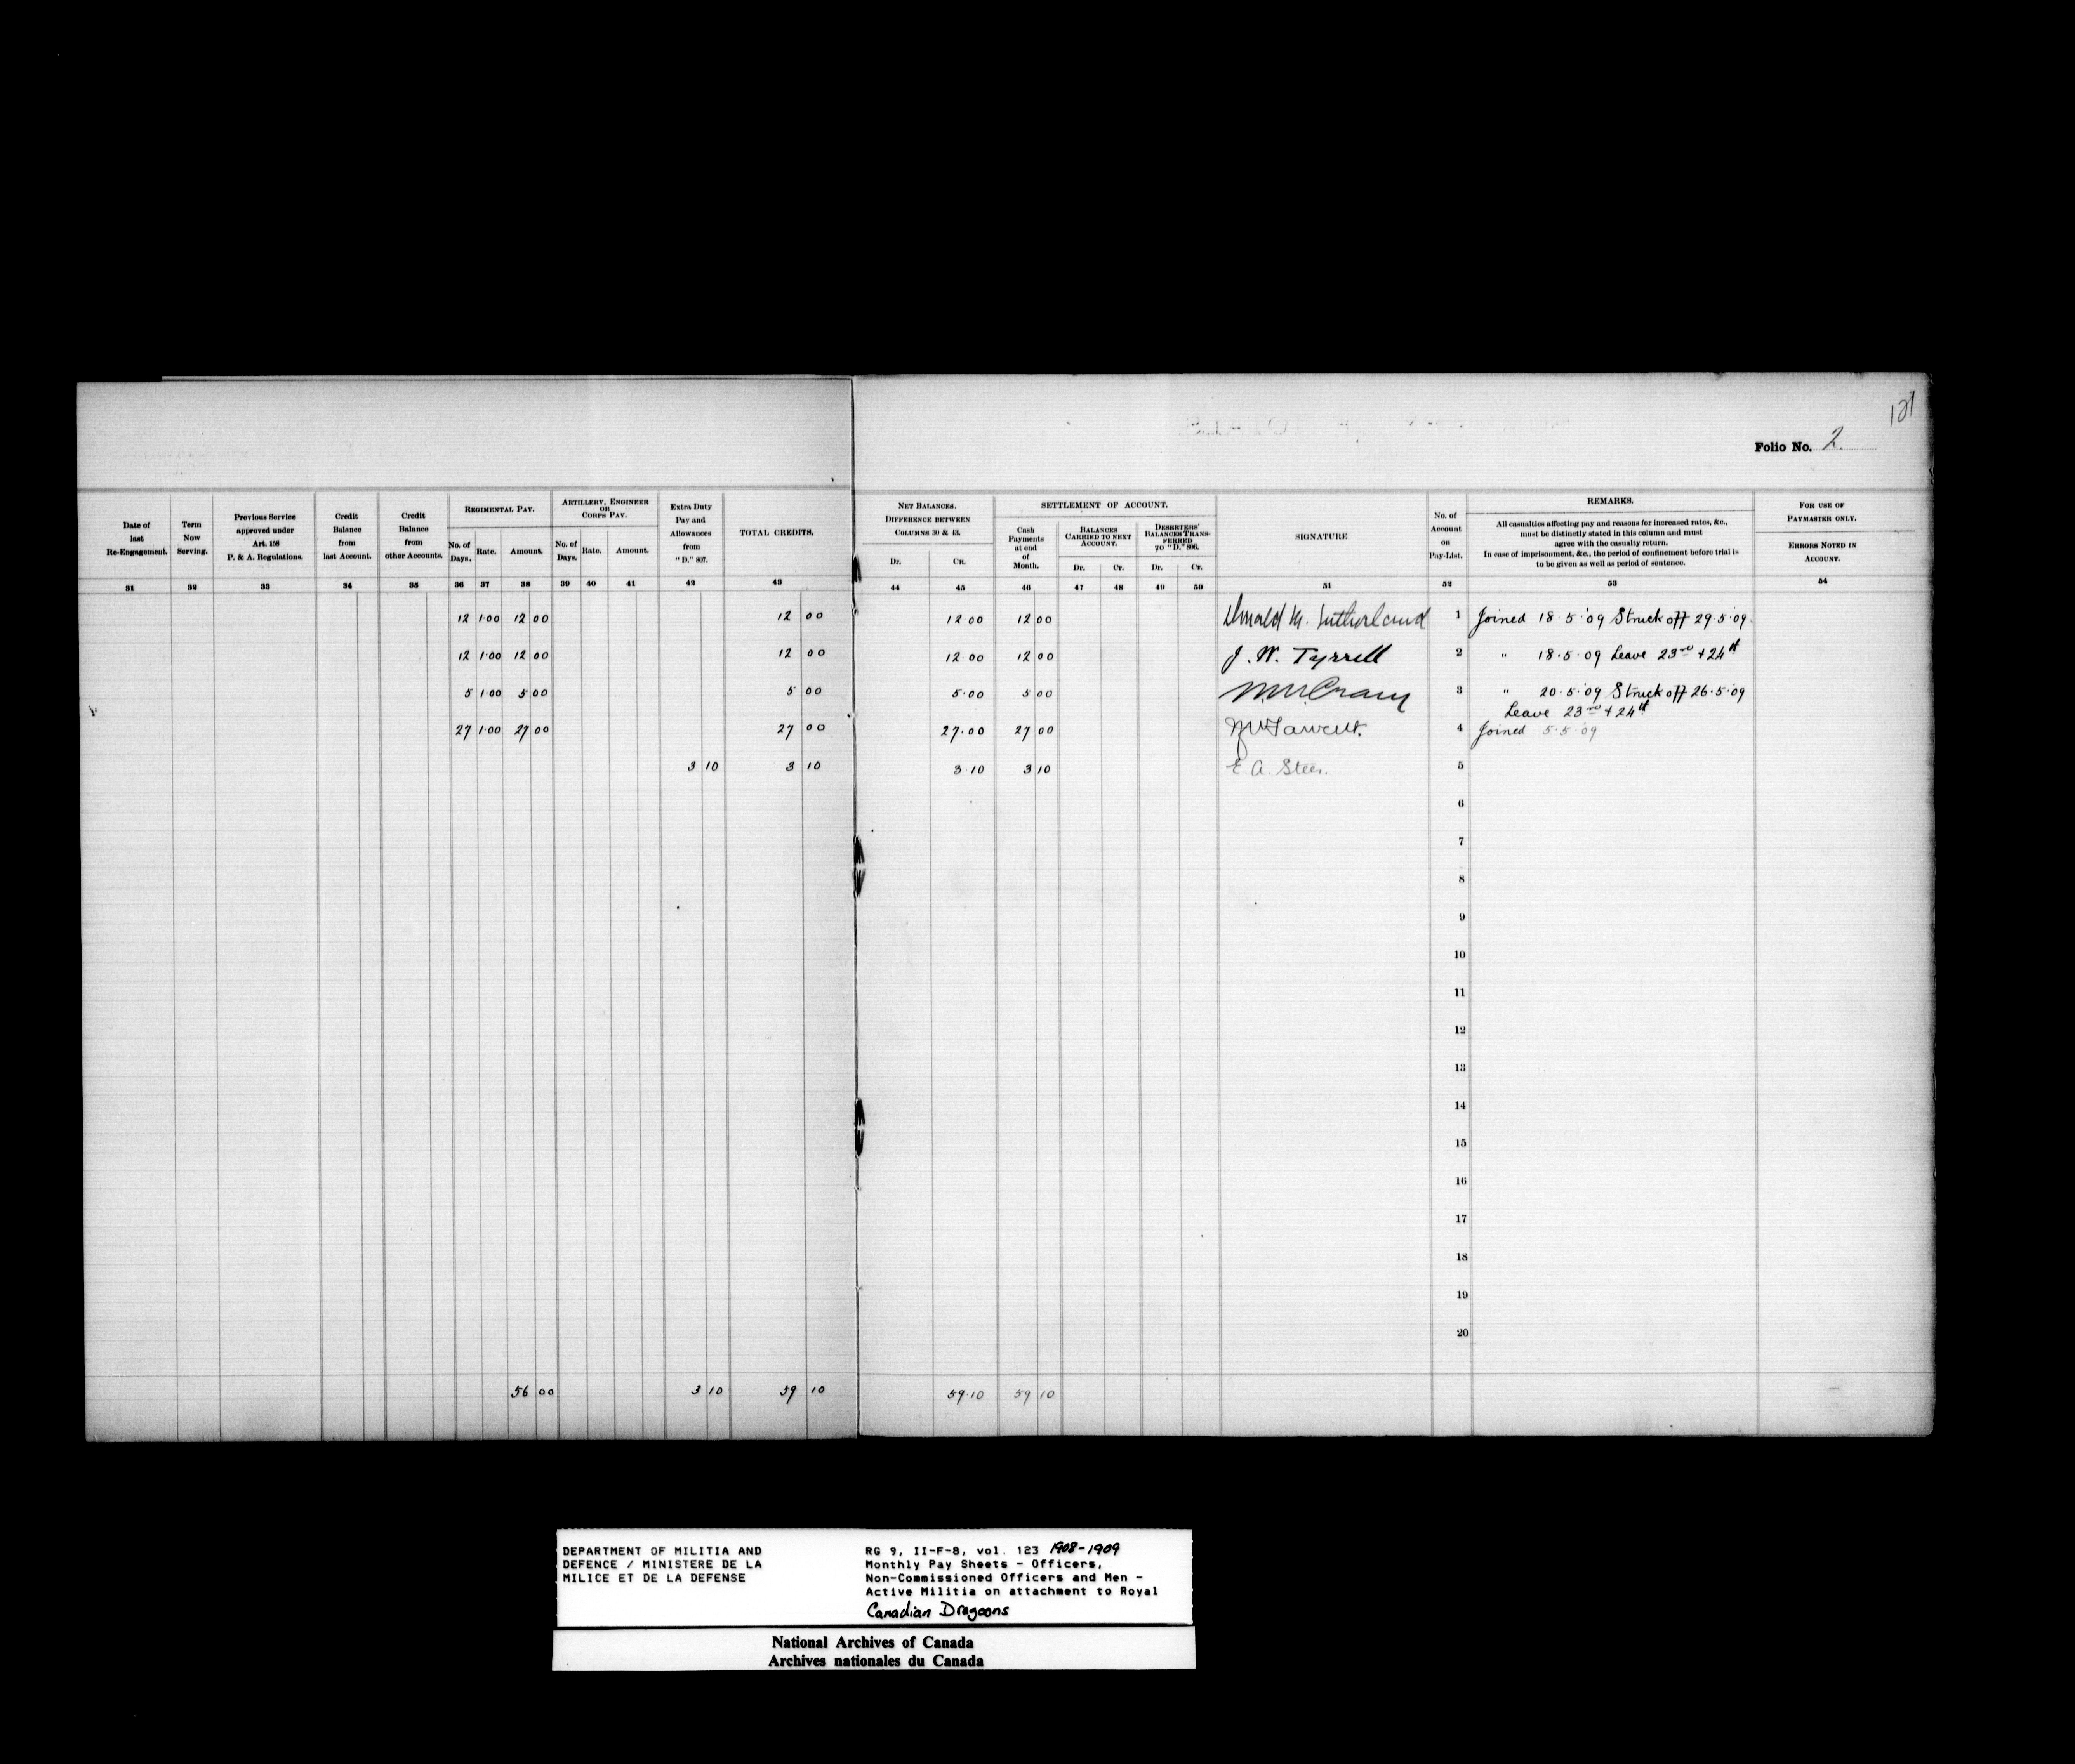 121
Folio No. 2.
Date of last Re-Engagement.
Term Now Serving.
Previous Service approved under Art. 158 P. & A. Regulations.
Credit Balance from last Account.
Credit Balance from other Accounts.
REGIMENTAL PAY.
No. of Days.
Rate.
Amount.
ARTILLERY, ENGINEER OR CORPS PAY.
No. of Days.
Rate.
Amount.
Extra Duty Pay and Allowances from "D." 807.
TOTAL CREDITS.
NET BALANCES. DIFFERENCE BETWEEN COLUMNS 30 & 43.
Dr.
Cr.
SETTLEMENT OF ACCOUNT.
Cash Payments at end of Month.
BALANCES CARRIED TO NEXT ACCOUNT.
Dr.
Cr.
DESERTERS' BALANCES TRANSFERRED TO "D." 806.
Dr.
Cr.
SIGNATURE
No. of Account on Pay-List.
REMARKS.
All casualties affecting pay and reasons for increased rates, &c.,
must be distinctly stated in this column and must
agree with the casualty return.
In case of imprisonment, &c., the period of confinement before trial is
to be given as well as period of sentence.
FOR USE OF PAYMASTER ONLY.
ERRORS NOTED IN ACCOUNT.
31 32 33 34 35 36 37 38 39 40 41 42 43 44 45 46 47 48 49 50 51 52 53 54
12 1.00 12 00 12 00 12 00 12 00 Donald M. Sutherland 1 Joined 18.5.'09 Struck off 29.5.'09.
12 1.00 12 00 12 00 12.00 12 00 J. W. Tyrrell 2 " 18.5.09 Leave 23rd + 24th
5 1.00 5 00 5 00 5.00 5 00 3 " 20.5.'09 Struck off 26.5.'09
Leave 23rd + 24th
27 1.00 27 00 27 00 27.00 27 00 4 Joined 5.5.'09
3 10 3 10 3.10 3 10 E. A. Steer. 5
6
7
8
9
10
11
12
13
14
15
16
17
18
19
20
56 00 3 10 59 10 59.10 59 10
DEPARTMENT OF MILITIA AND
DEFENCE / MINISTERE DE LA
MILICE ET DE LA DEFENSE
RG 9, II-F-8, vol. 123 1908-1909
Monthly Pay Sheets - Officers,
Non-Commissioned Officers and Men -
Active Militia on attachment to Royal
Canadian Dragoons
National Archives of Canada
Archives nationales du Canada